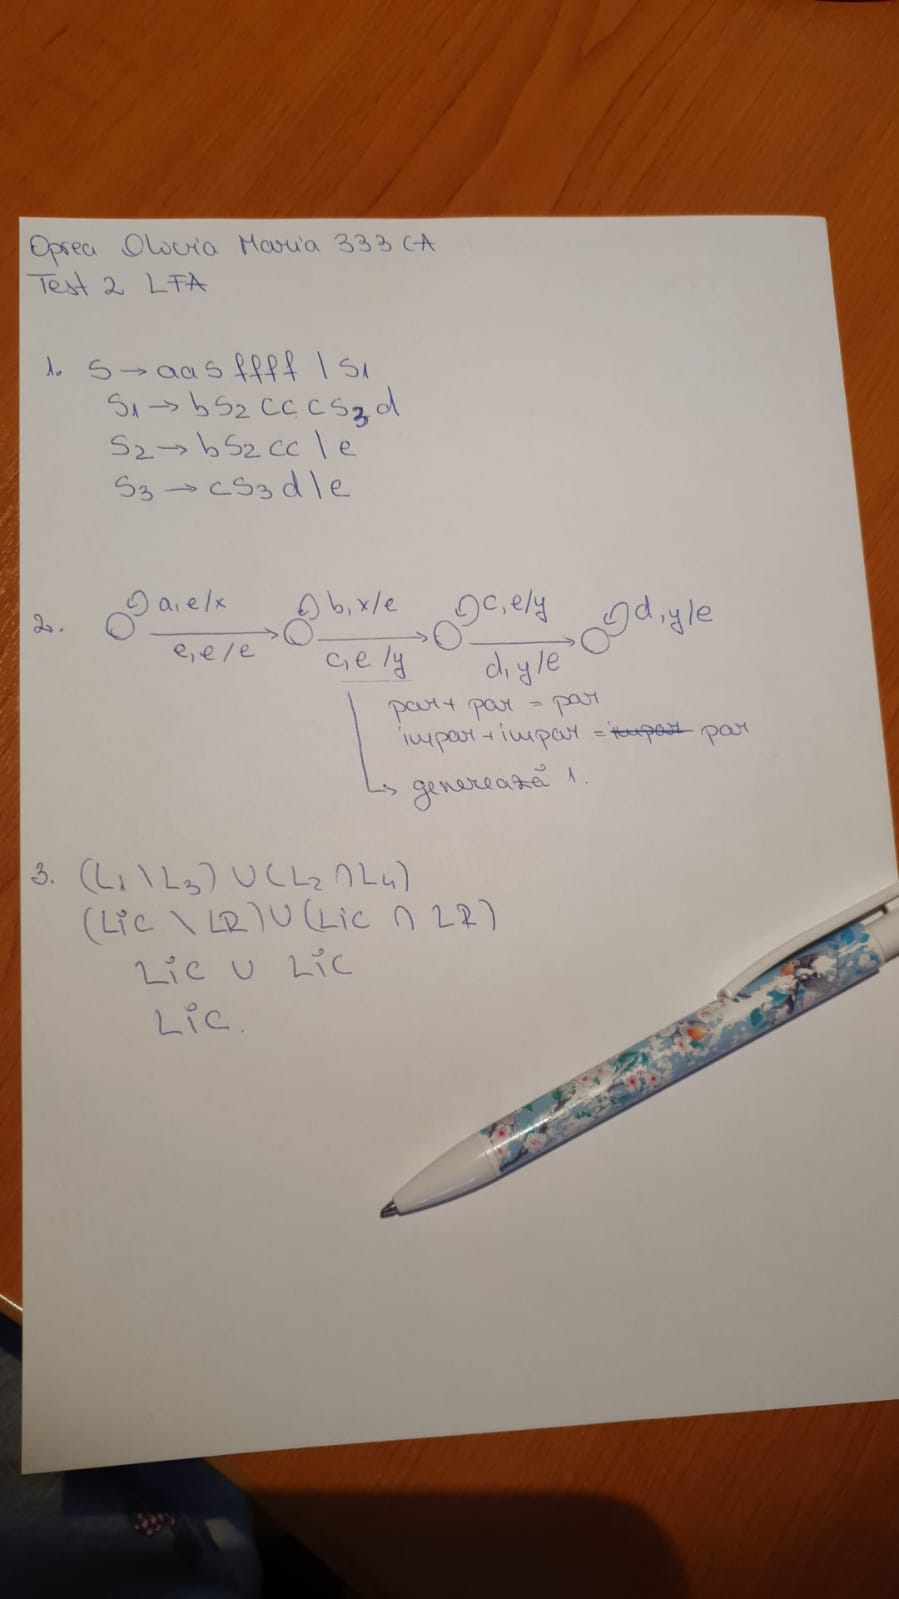 Oprea Olivia Maria 333 CA
Test 2 LFA
1. S → aaSffff | S1
S1 → bS2cccS3d
S2 → bS2cc | e
S3 → cS3d | e
2. a,e/x b,x/e c,e/y d,y/e
e,e/e c,e/y d,y/e
par + par = par
impar + impar = impar par
↳ generează 1.
3. (L1 \ L3) ∪ (L2 ∩ L4)
(LiC \ LR) ∪ (LiC ∩ LR)
LiC ∪ LiC
LiC.